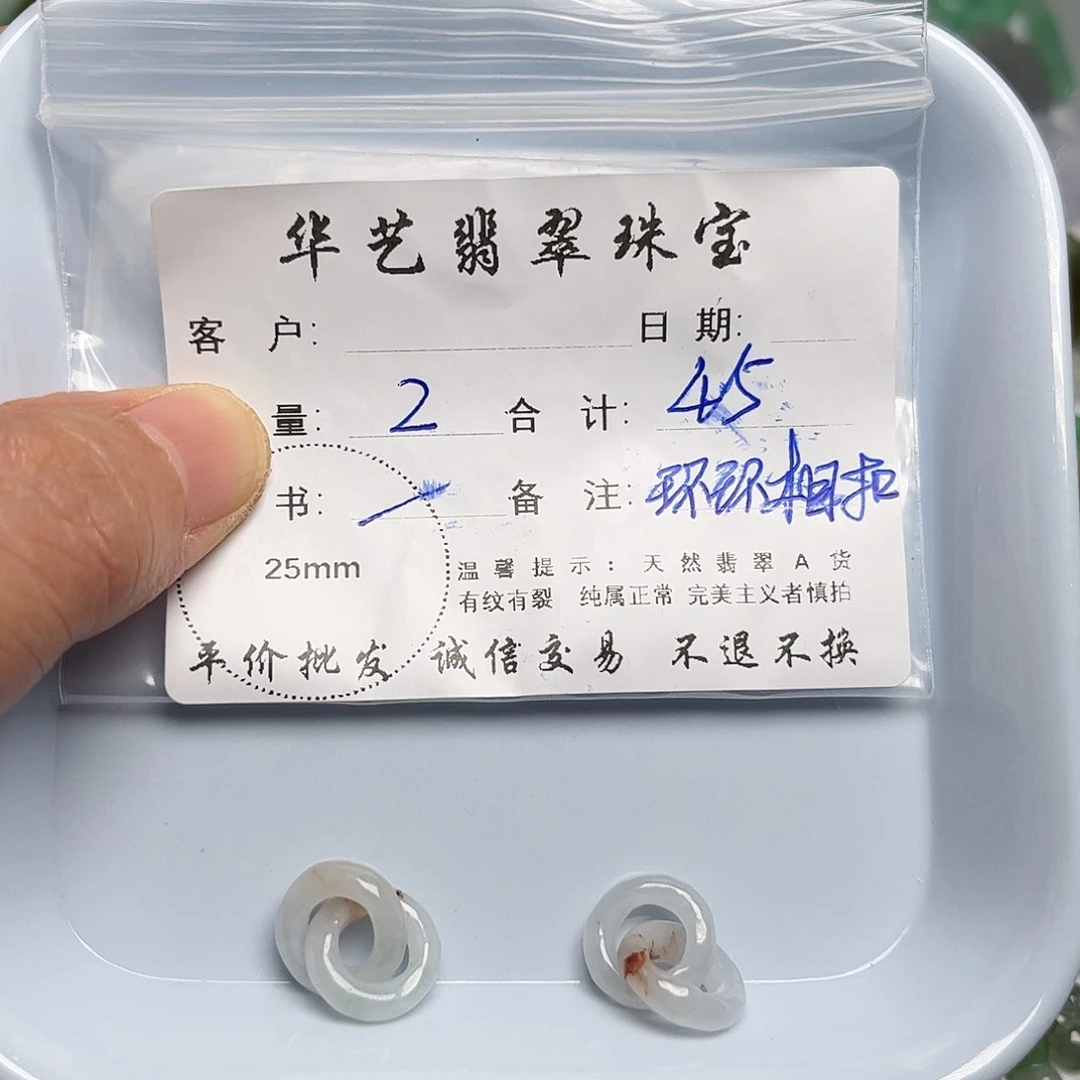 华艺翡翠珠宝
客 户: 日 期:
量: 2 合 计: 45
书: 备 注: 环环相扣
25mm
温馨提示: 天然翡翠A货
有纹有裂 纯属正常 完美主义者慎拍
平价批发 诚信交易 不退不换